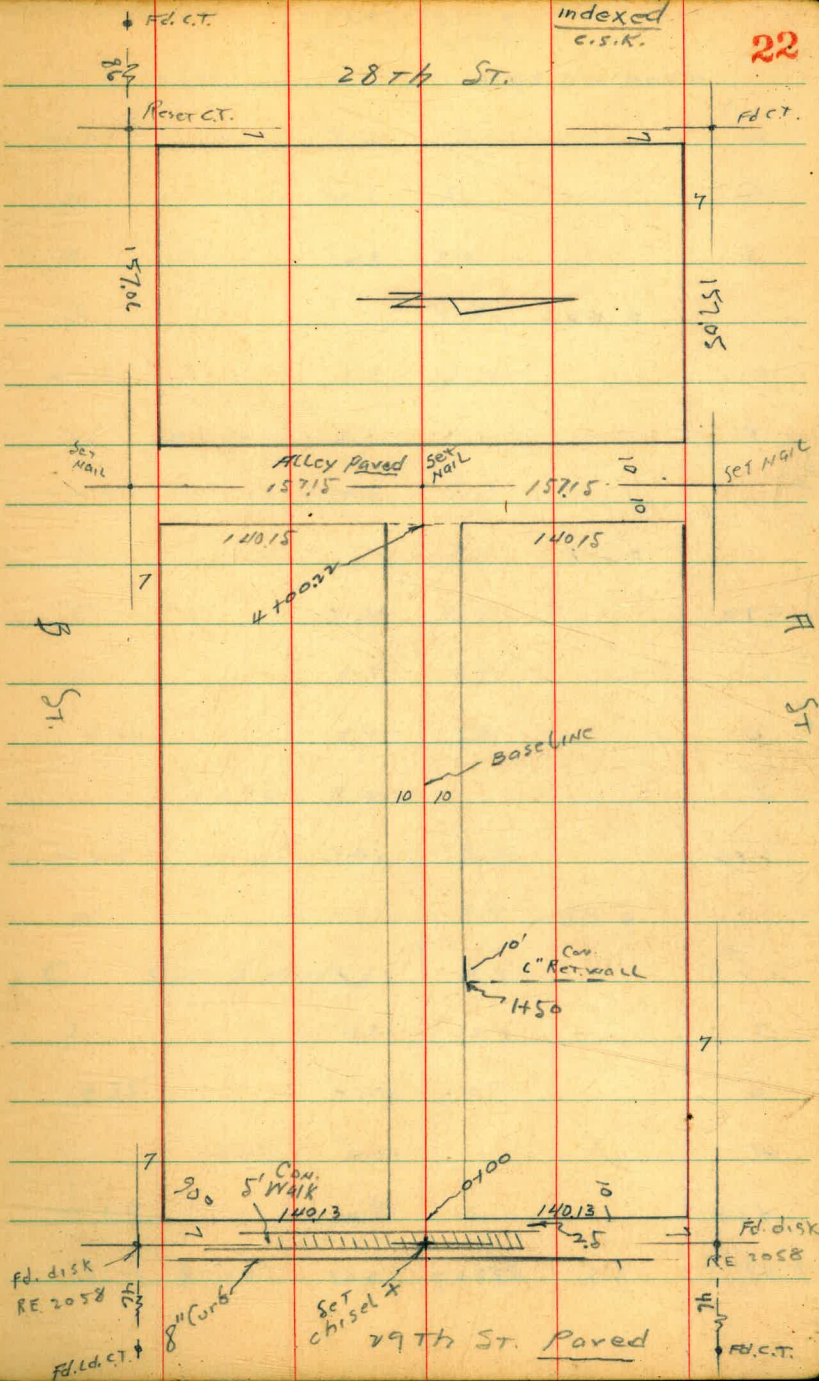 Fd. C.T.
indexed
C.S.K.
22
28Th St.
Reset C.T.
Fd C.T.
7
7
7
157.06
157.05
N
Set Nail
Alley Paved
Set Nail
Set Nail
157.15
157.15
10
10
140.15
140.15
4+00.22
7
B St.
A St
Baseline
10
10
10'
Con.
6" Ret. Wall
1+50
7
7
90°
5' Con. Walk
140.13
0+00
140.13
10
7
2.5
7
Fd. disk
RE 2058
Fd. disk
RE 2058
8" Curb
Set chisel X
29Th St. Paved
Fd. Ld. C.T.
Fd. C.T.